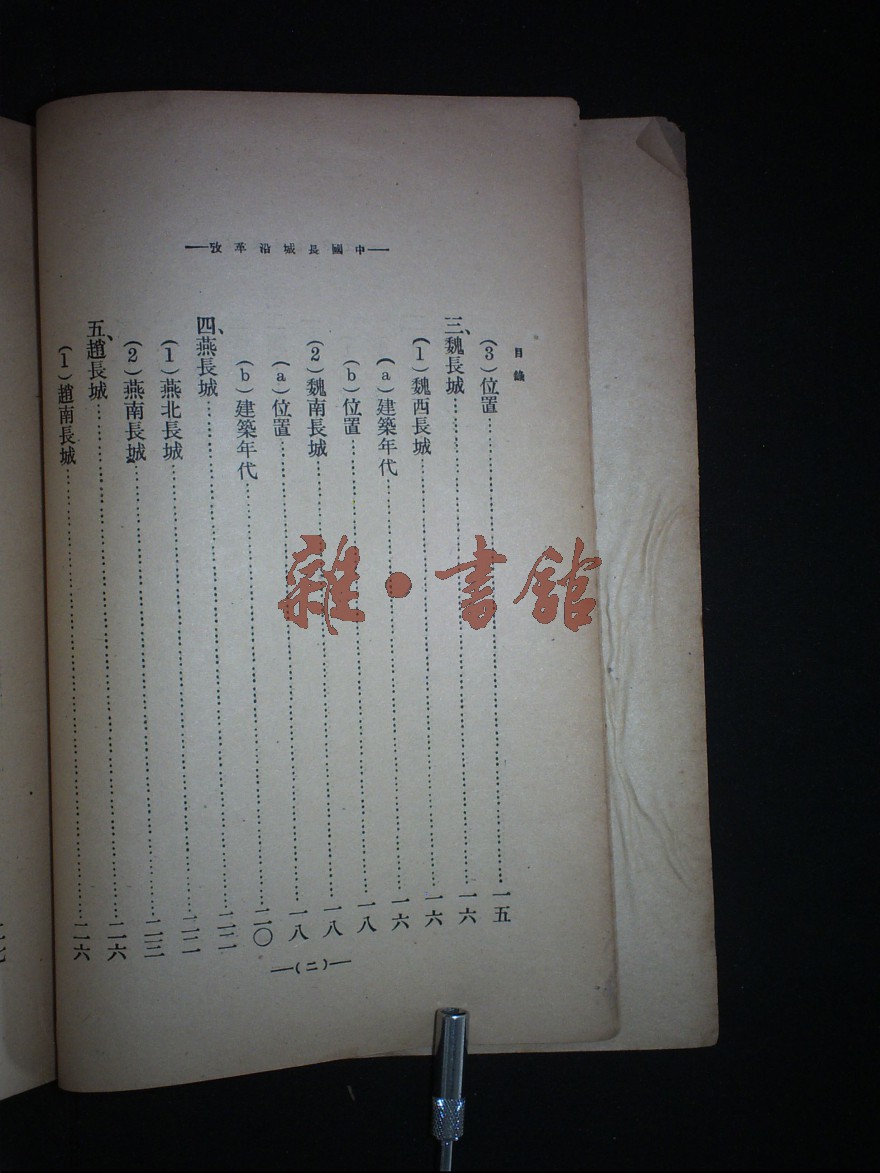 —中國長城沿革攷—
目錄
(3)位置……一五
三、魏長城……一六
(1)魏西長城……一六
(a)建築年代……一六
(b)位置……一八
(2)魏南長城……一八
(a)位置……一八
(b)建築年代……二〇
四、燕長城……二二
(1)燕北長城……二二
(2)燕南長城……二三
五、趙長城……二六
(1)趙南長城……二六
—(二)—
雜·書館